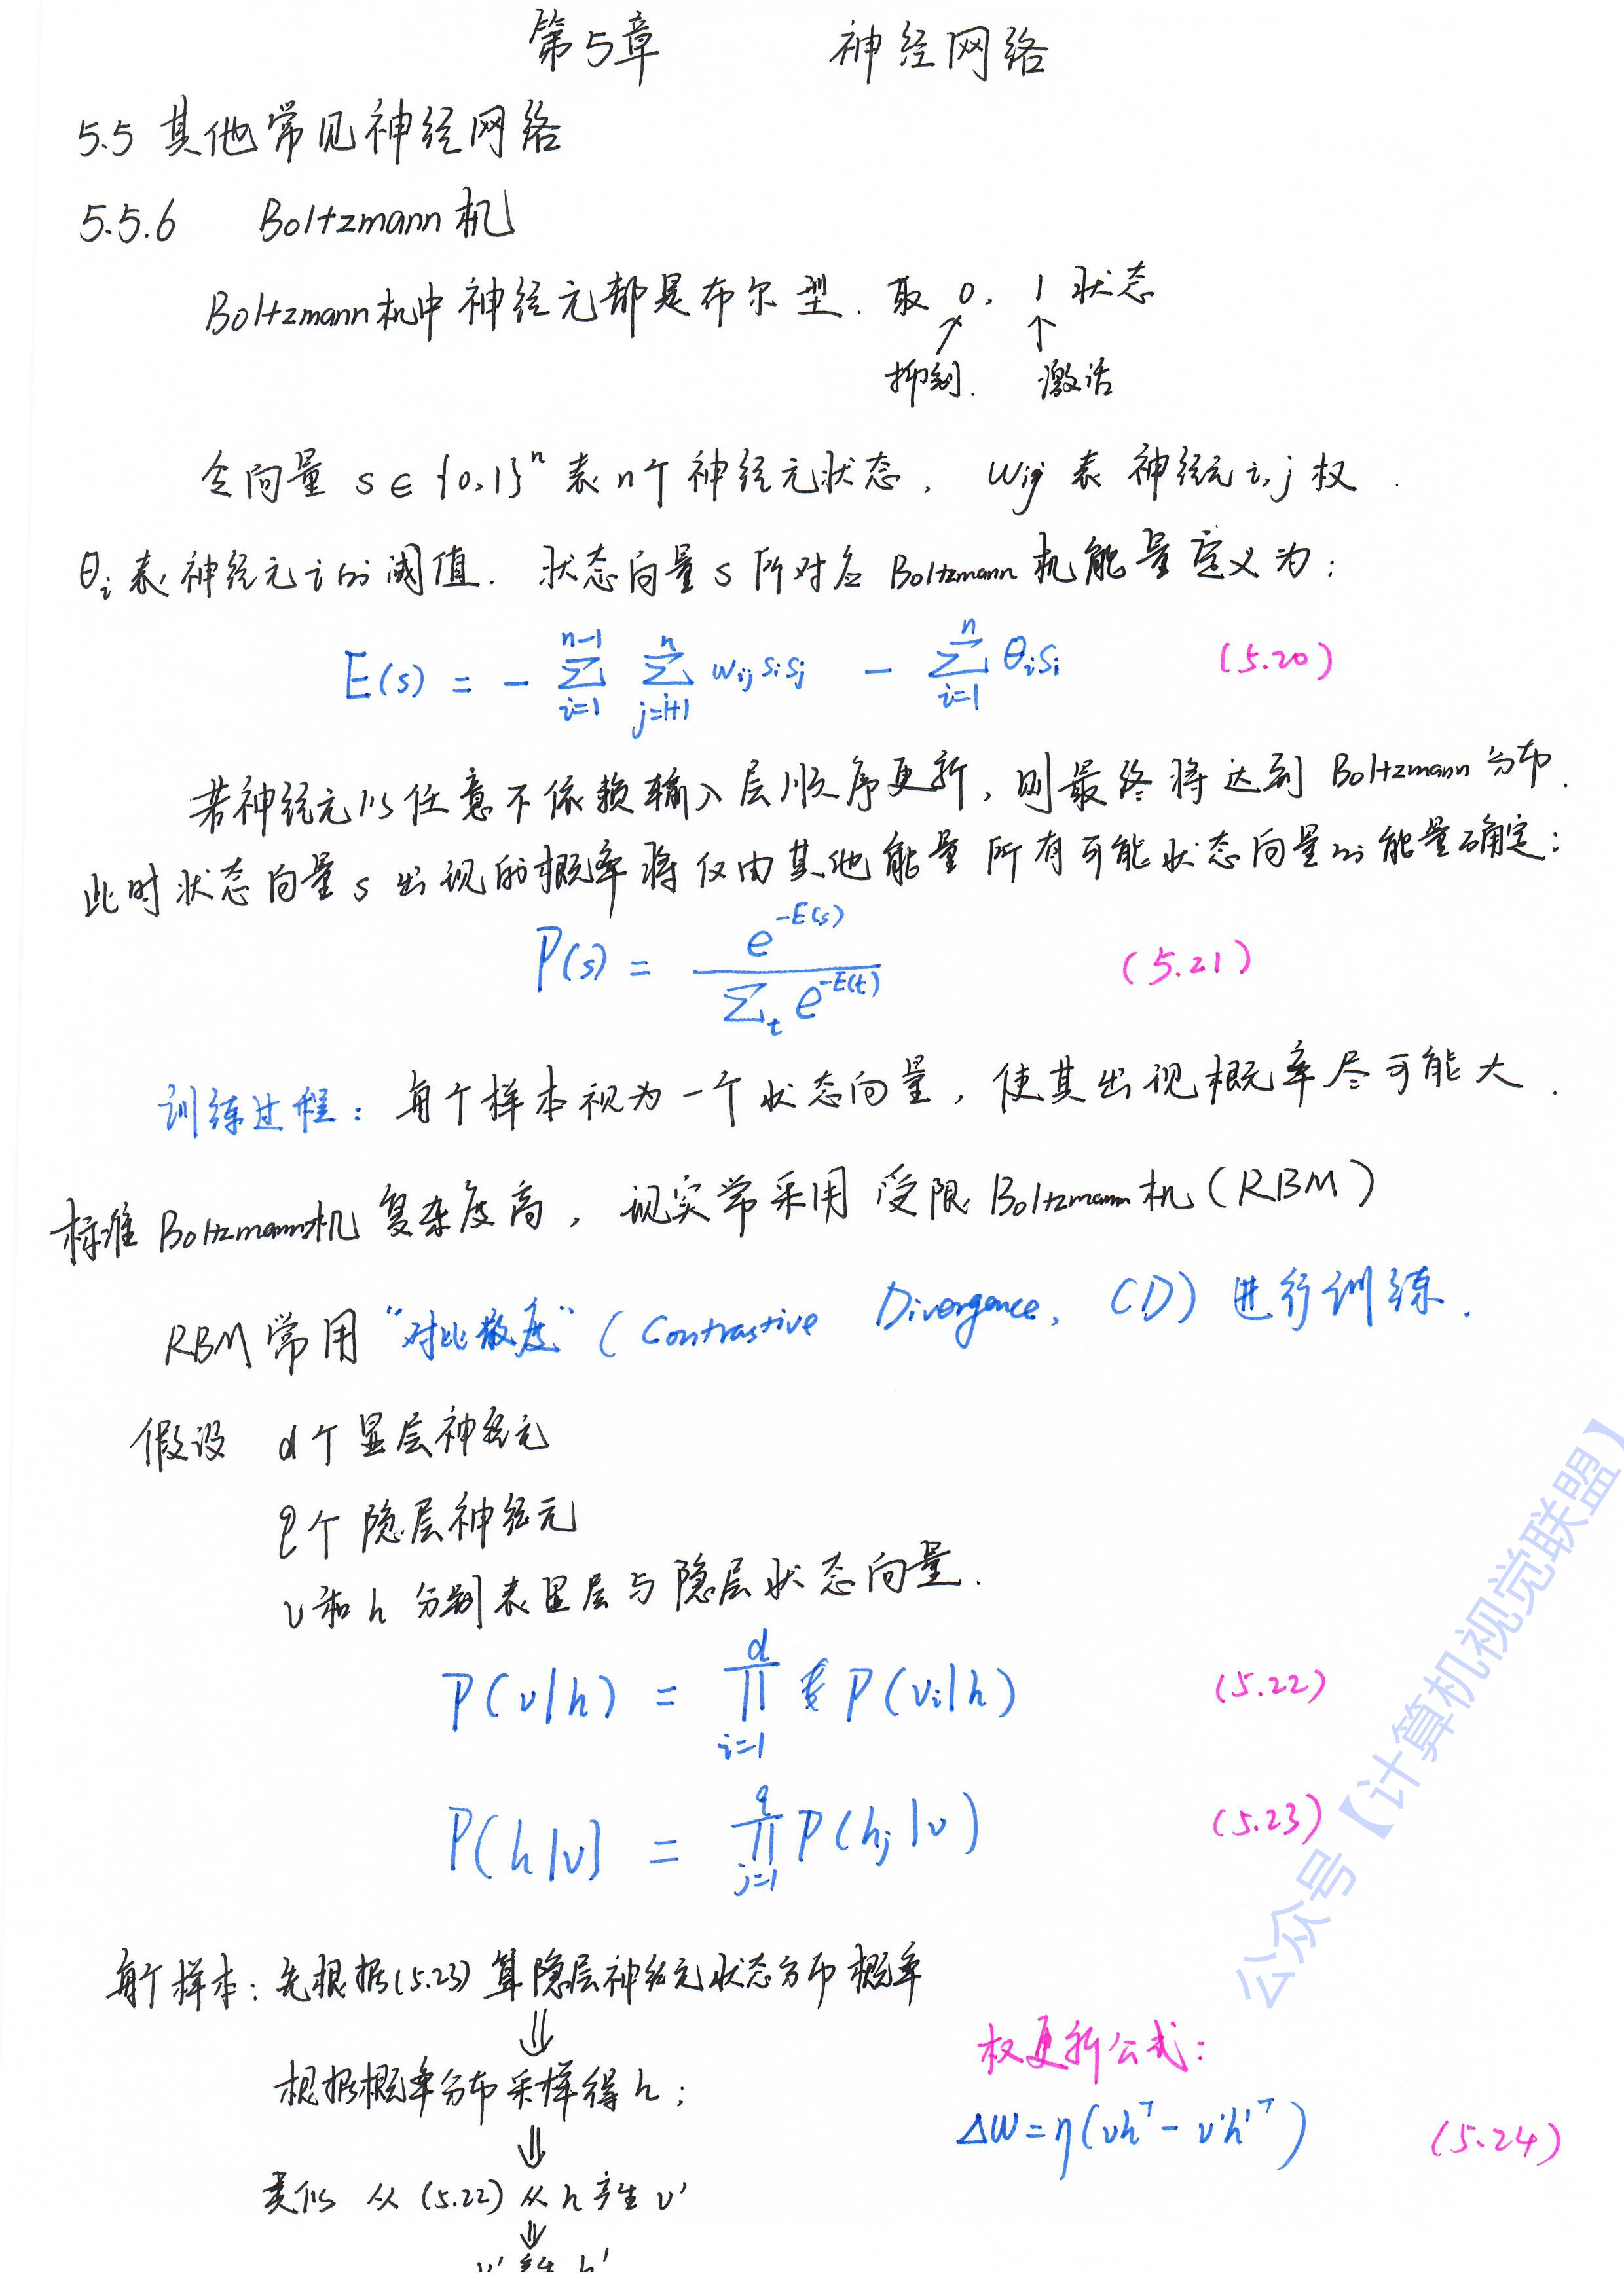 第5章 神经网络
5.5 其他常见神经网络
5.5.6 Boltzmann机
Boltzmann机中神经元都是布尔型. 取 0, 1 状态
↗ ↑
抑制. 激活
令向量 s ∈ {0,1}ⁿ 表 n个神经元状态, wij 表 神经元 i,j 权.
θi 表神经元 i 的阈值. 状态向量 s 所对应 Boltzmann 机能量定义为:
E(s) = - ∑_{i=1}^{n-1} ∑_{j=i+1}^{n} wij si sj - ∑_{i=1}^{n} θi si (5.20)
若神经元以任意不依赖输入层顺序更新, 则最终将达到 Boltzmann 分布.
此时状态向量 s 出现的概率将仅由其他能量 所有可能状态向量的能量确定:
P(s) = e^{-E(s)} / ∑_t e^{-E(t)} (5.21)
训练过程: 每个样本视为一个状态向量, 使其出现概率尽可能大.
标准 Boltzmann机 复杂度高, 现实常采用 受限 Boltzmann 机 (RBM)
RBM 常用 "对比散度" ( Contrastive Divergence, CD) 进行训练.
假设 d个显层神经元
q个隐层神经元
v和h 分别表显层与隐层状态向量.
P(v|h) = ∏_{i=1}^{d} P(vi|h) (5.22)
P(h|v) = ∏_{j=1}^{q} P(hj|v) (5.23)
每个样本: 先根据(5.23) 算隐层神经元状态分布概率
⇓
根据概率分布采样得 h;
⇓
类似 从 (5.22) 从 h 产生 v'
⇓
v' 产生 h'
权更新公式:
ΔW = η(vh^T - v'h'^T) (5.24)
公众号【计算机视觉联盟】